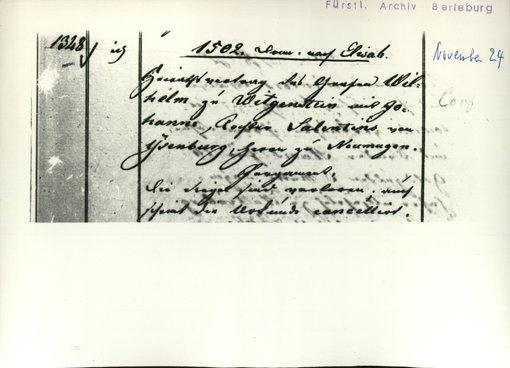 Fürstl. Archiv Berleburg
1348 ig " 1502. Donn. nach Elisab.
November 24
Heirathsvertrag des Grafen Wil-
helm zu Witgenstein mit Jo-
hanna, Tochter Salentins von
Ysenburg, Herrn zu Neumagen.
Pergament.
Die Siegel sind verloren, auch
scheint die Urkunde cancellirt.